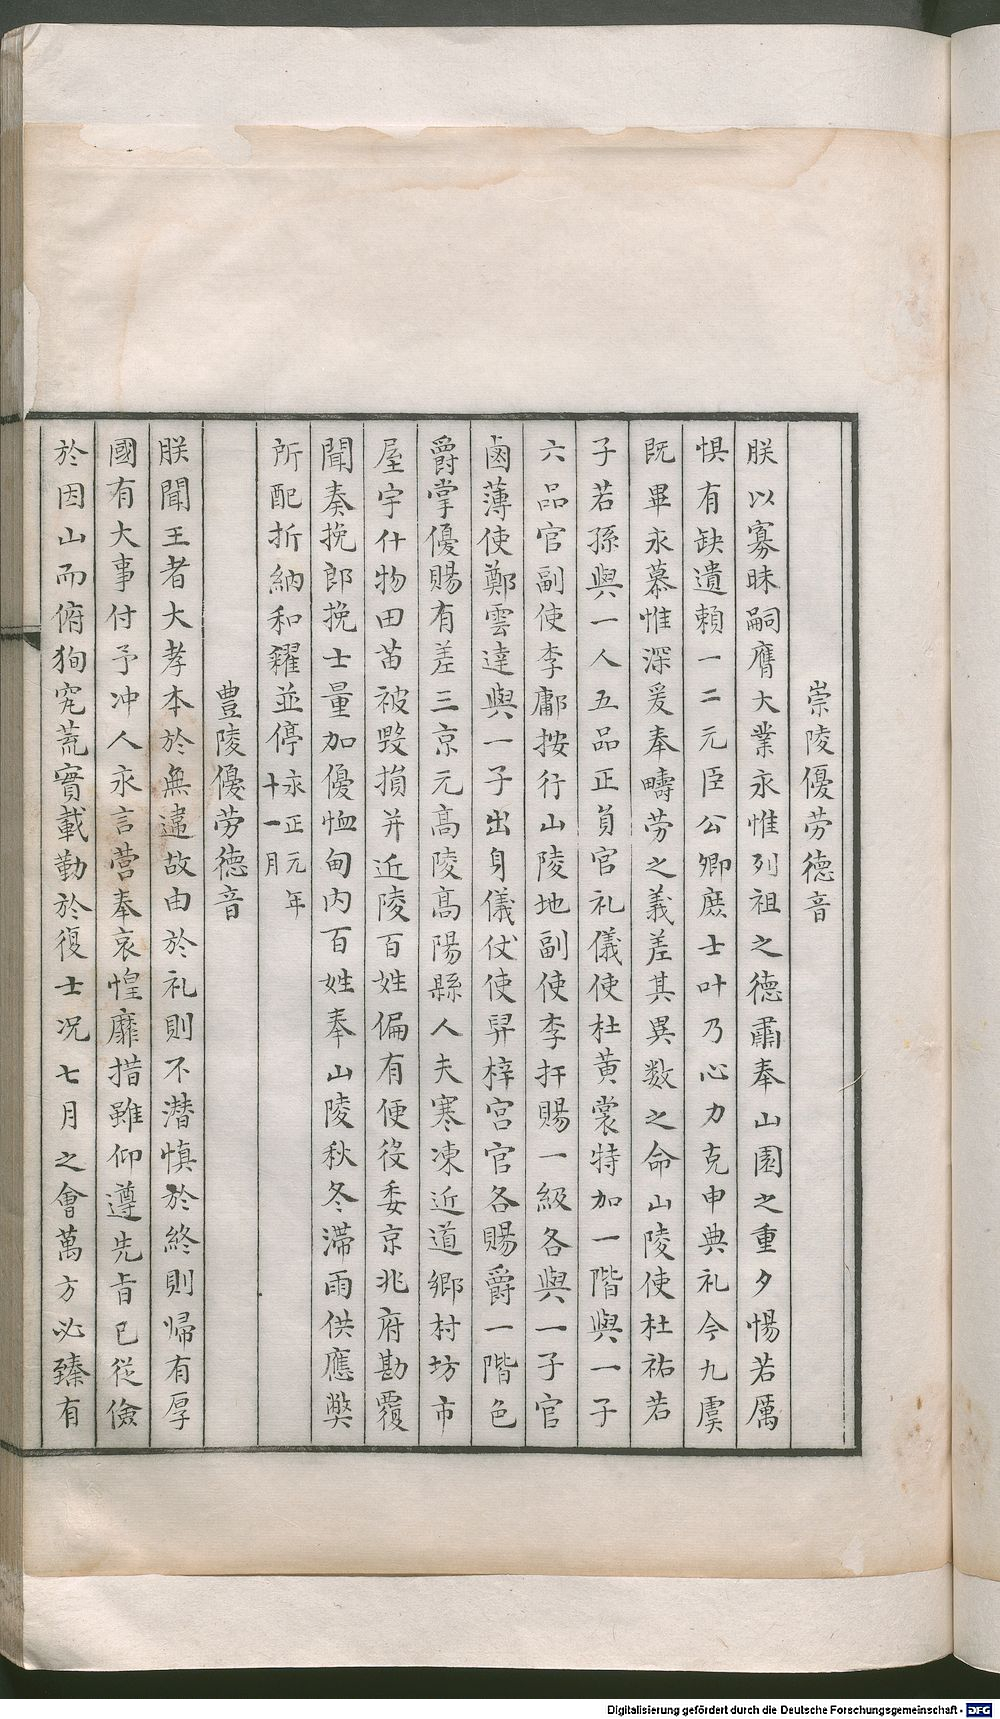 崇陵優劳德音
朕以寡昧嗣膺大業永惟列祖之德肅奉山園之重夕惕若厲
惧有缺遺賴一二元臣公卿庶士叶乃心力克申典礼今九虞
既畢永慕惟深爰奉疇劳之義差其異数之命山陵使杜祐若
子若孫與一人五品正員官礼儀使杜黃裳特加一階與一子
六品官副使李鄘按行山陵地副使李扞賜一級各與一子官
鹵薄使鄭雲逵與一子出身儀仗使舁梓宮官各賜爵一階色
爵掌優賜有差三京元高陵高陽縣人夫寒凍近道鄉村坊市
屋宇什物田苗被毀損并近陵百姓偏有便役委京兆府勘覆
聞奏挽郎挽士量加優恤甸内百姓奉山陵秋冬滯雨供應獘
所配折納和糴並停永正元年十一月
豊陵優劳德音
朕聞王者大孝本於無違故由於礼則不潜慎於終則帰有厚
國有大事付予冲人永言营奉哀惶靡措雖仰遵先旨已從儉
於因山而俯狥宄荒實載勤於復士况七月之會萬方必臻有
Digitalisierung gefördert durch die Deutsche Forschungsgemeinschaft - DFG